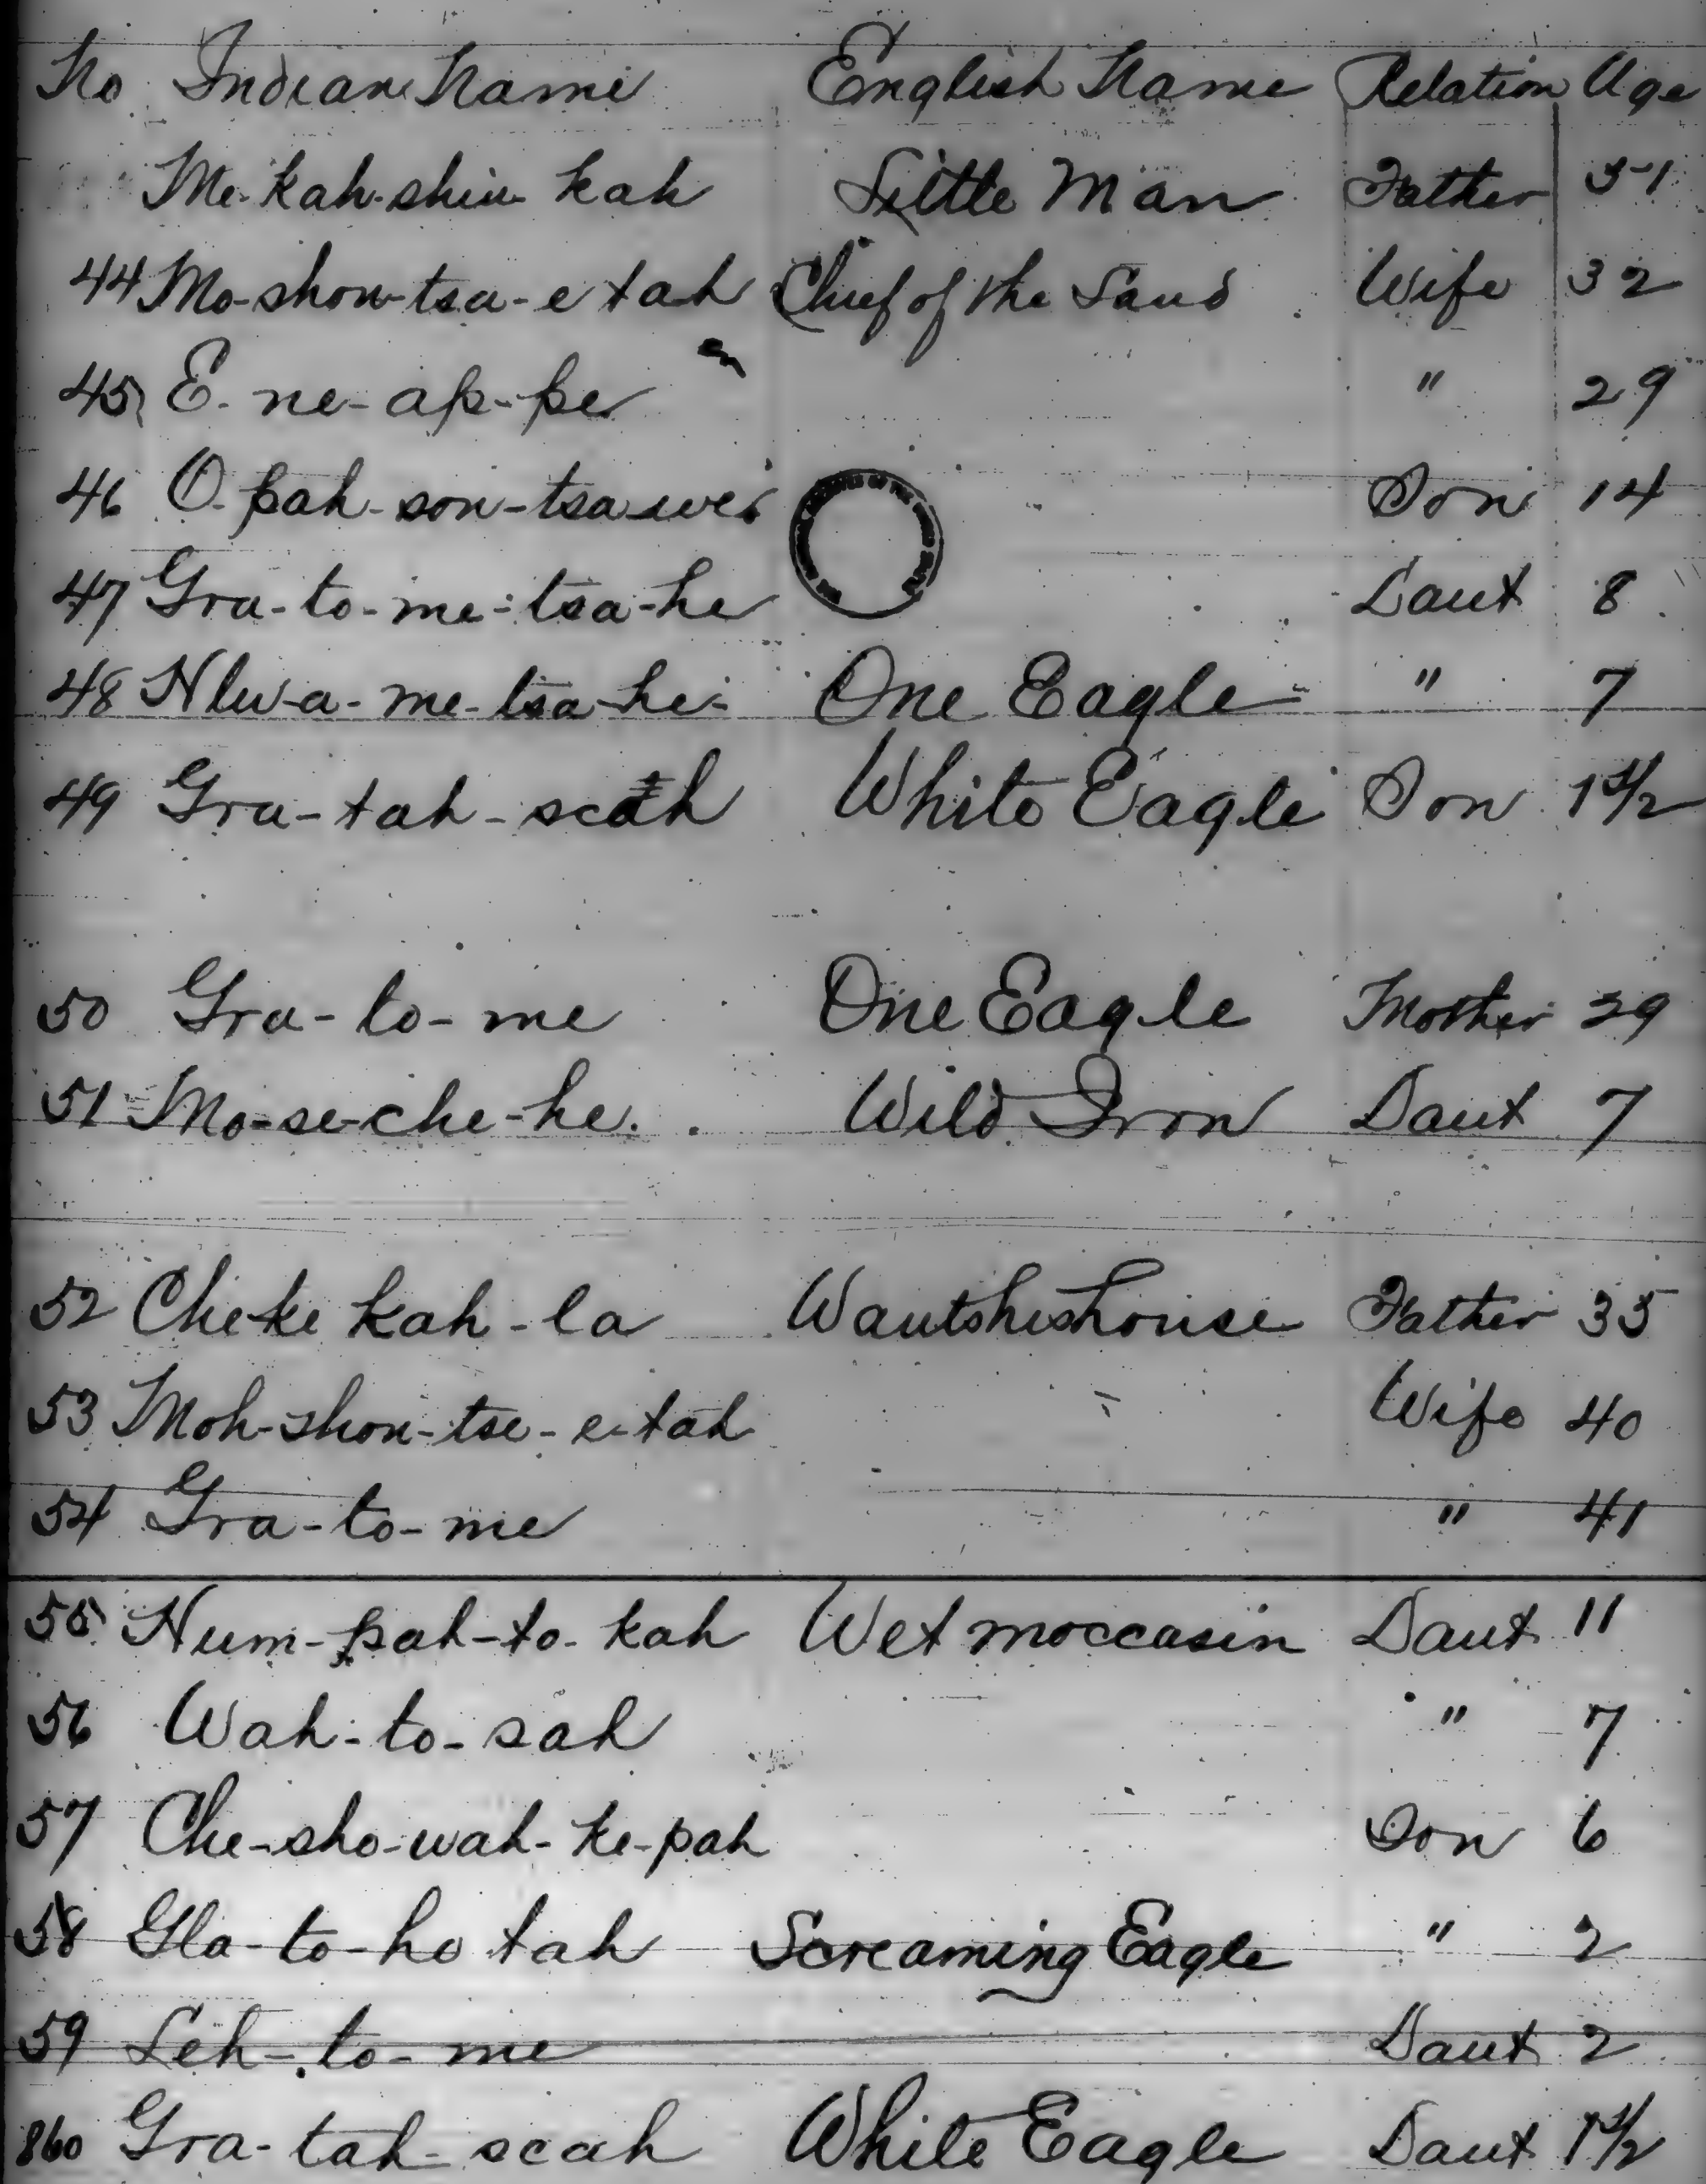 No Indian Name English Name Relation Age
Me-kah-shin kah Little Man Father 51
44 Mo-shon-tsa-e tah Chief of the Land Wife 32
45 E-ne-ap-pe " 29
46 O-pah-son-tsa-we Son 14
47 Gra-to-me-tsa-he Daut 8
48 Nlw-a-me-tsa-he One Eagle " 7
49 Gra-tah-scah White Eagle Son 1 1/2
50 Gra-to-me One Eagle Mother 29
51 Mo-se-che-he. Wild Iron Daut 7
52 Che-ke kah-la Wantshishouse Father 35
53 Moh-shon-tse-e-tah Wife 40
54 Gra-to-me " 41
55 Num-pah-to-kah Wet moccasin Daut 11
56 Wah-to-sah " 7
57 Che-sho-wah-ke-pah Son 6
58 Gla-to-ho tah Screaming Eagle " 2
59 Leh-to-me Daut 2
860 Gra-tah-scah White Eagle Daut 1 1/2